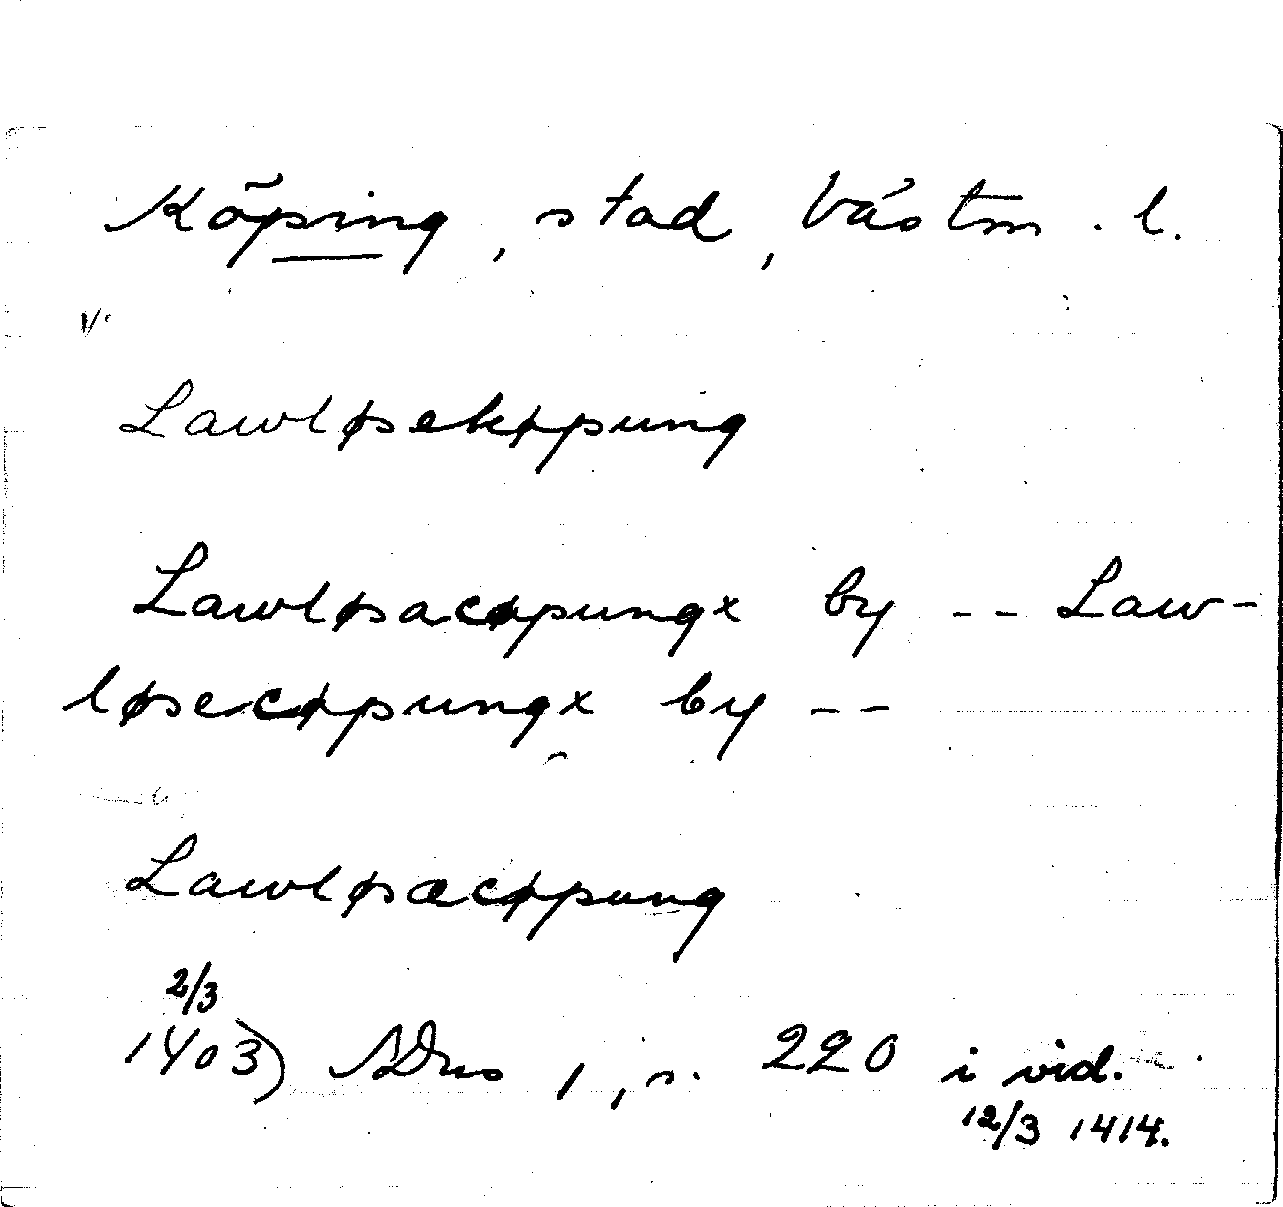 Köping, stad, Västm. l.
Lawløsekøpung
Lawløsacøpungx by -- Law-
løsecøpungx by --
Lawløsæcøpung
2/3
1403) SDns 1, s. 220 i vid.
12/3 1414.